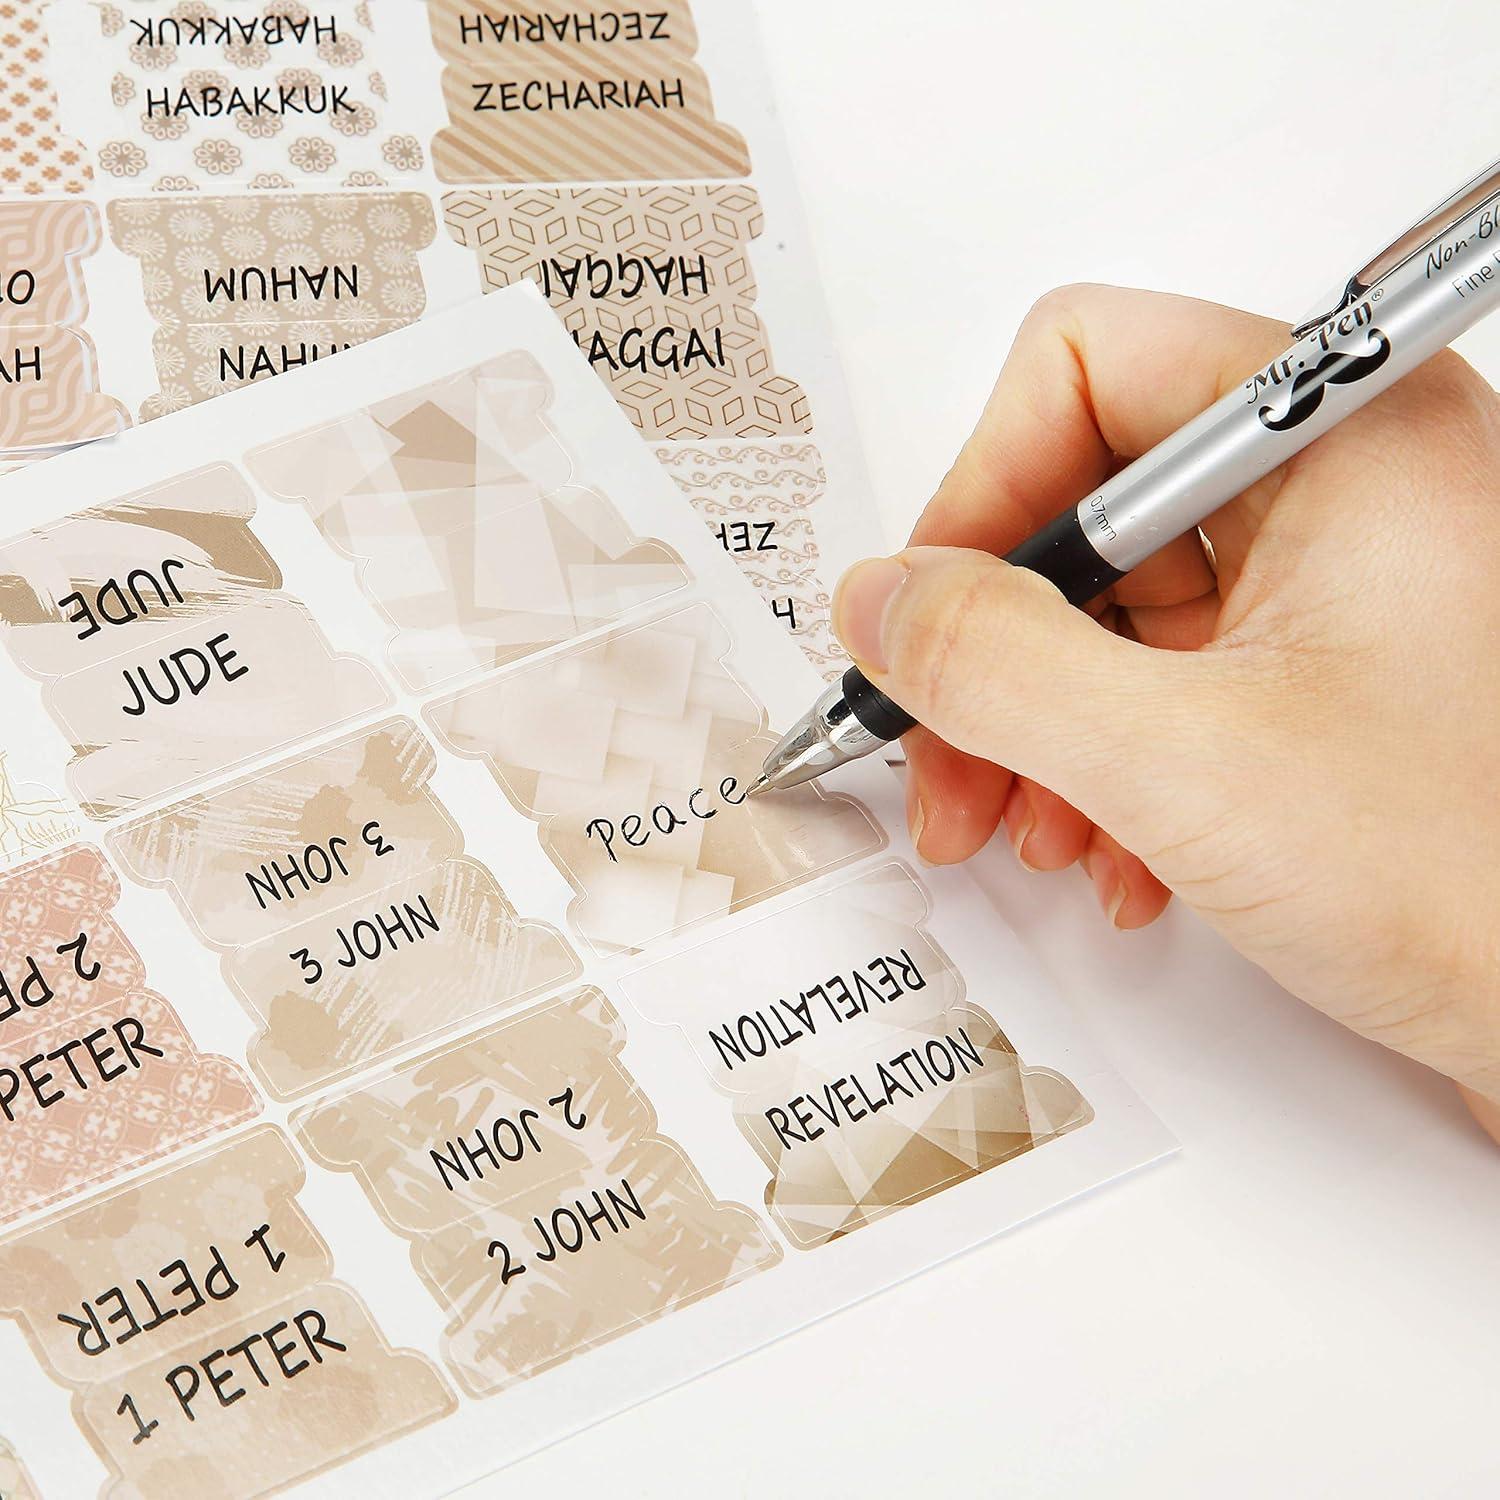 HABAKKUK
HABAKKUK
ZECHARIAH
ZECHARIAH
NAHUM
NAHUM
HAGGAI
HAGGAI
JUDE
JUDE
Peace
3 JOHN
3 JOHN
REVELATION
REVELATION
2 PE
PETER
2 JOHN
2 JOHN
1 PETER
1 PETER
Mr. Pen®
Non-Bl
Fine
0.7mm